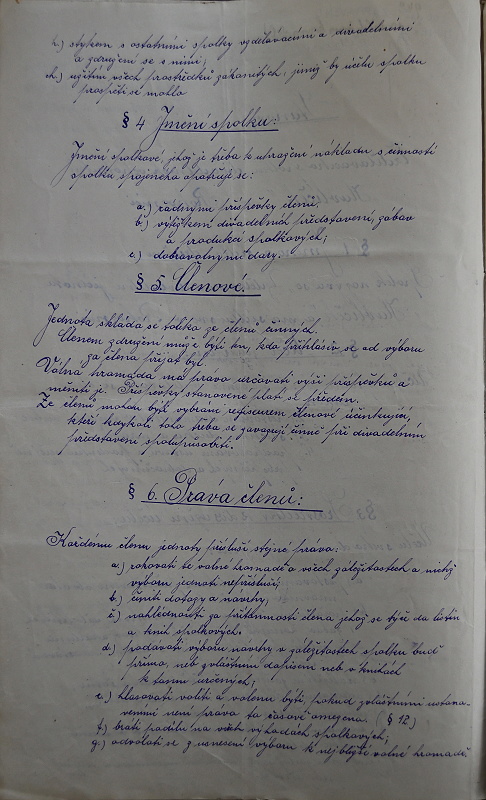 h.) stykem s ostatními spolky vzdělávacími a divadelními
a sdružení se s nimi;
ch.) užitím všech prostředků zákonitých, jimiž by účelu spolku
prospěti se mohlo
§ 4 Jmění spolku:
Jmění spolkové, jehož je třeba k uhražení nákladu s činností
spolku spojeného opatřuje se:
a.) řádnými příspěvky členů.
b.) výtěžkem divadelních představení, zábav
a produkcí spolkových;
c.) dobrovolnými dary.
§ 5. Členové.
Jednota skládá se toliko ze členů činných.
Členem sdružení může býti ten, kdo přihlásiv se od výboru
za člena přijat byl.
Valná hromada má právo určovati výši příspěvků a
měniti je. Příspěvky stanovené platí se předem.
Ze členů mohou býti vybráni režisérem členové účinkující,
kteří kdykoli toho třeba se zavazují činně při divadelním
představení spolupůsobiti.
§ 6. Práva členů:
Každému členu jednoty přísluší stejné práva:
a.) rokovati ve valné hromadě o všech záležitostech o nichž
výboru jednati nepřísluší;
b.) činiti dotazy a návrhy;
c.) nahlédnouti za přítomnosti člena jehož se týče do listin
a knih spolkových.
d.) podávati výboru návrhy v záležitostech spolku buď
přímo, neb zvláštním dopisem neb v knihách
k tomu určených;
e.) hlasovati voliti a volenu býti, pokud zvláštními ustano-
veními není práva ta časově omezena. (§ 12)
f.) bráti podílu na všech výhodách spolkových;
g.) odvolati se z usnesení výboru k nejbližší valné hromadě